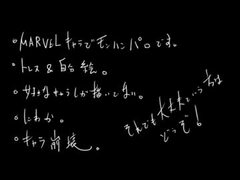 ・MARVELキャラでモンハンパロです。
・トレス&自己絵。
・好きなキャラしか描いてない。
・にわか。
・キャラ崩壊。
それでも大丈夫という方は
どうぞ!